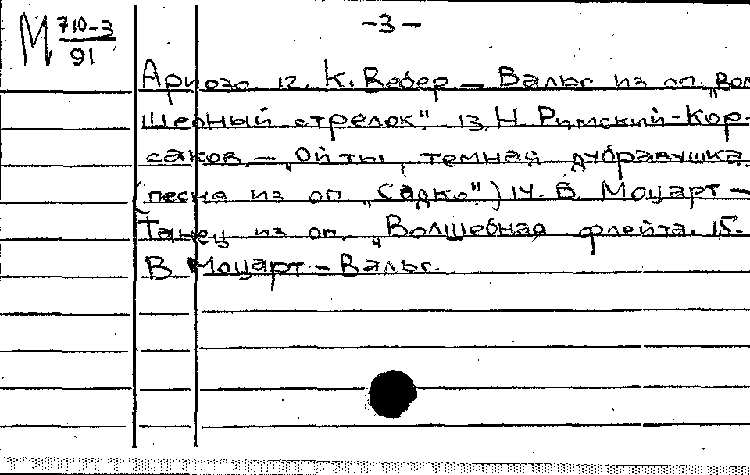 М 710-3
91
-3-
Ариозо 12. К. Вебер – Вальс из оп. „Вол
шебный стрелок" 13. Н. Римский-Кор-
саков – „Ой ты, темная дубравушка
(песня из оп „Садко") 14. В. Моцарт –
Танец из оп. „Волшебная флейта. 15.
В Моцарт – Вальс.